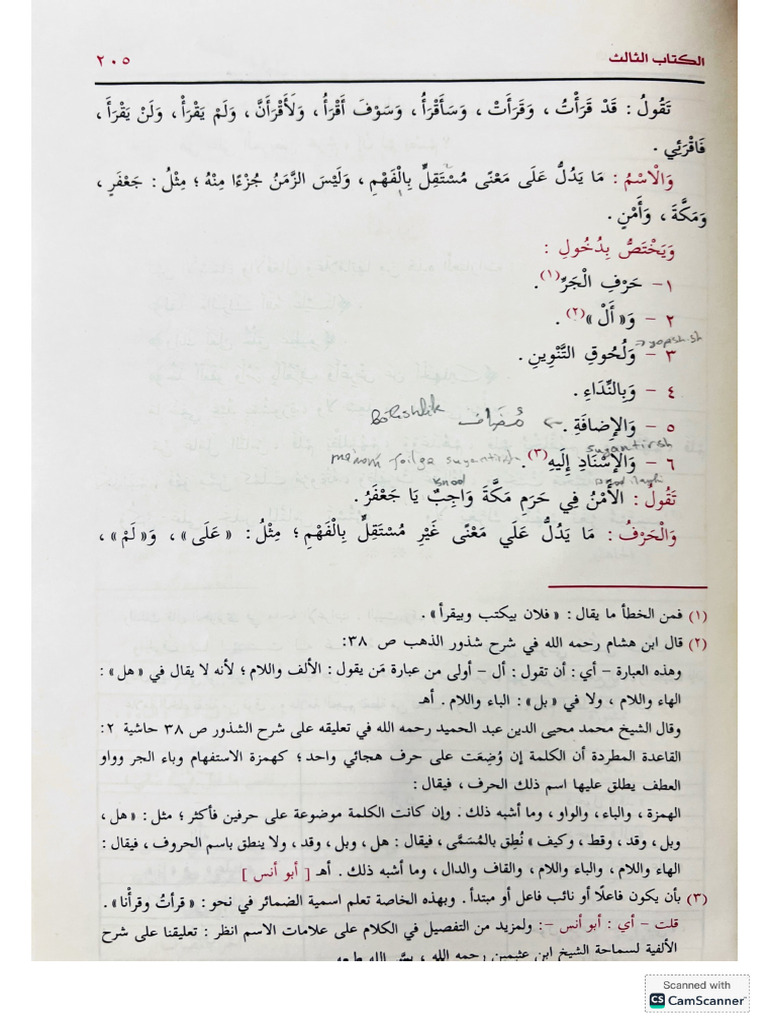 الكتاب الثالث ٢٠٥
تَقُولُ : قَدْ قَرَأْتُ ، وَقَرَأَتْ ، وَسَأَقْرَأُ ، وَسَوْفَ أَقْرَأُ ، وَلَأَقْرَأَنَّ ، وَلَمْ يَقْرَأْ ، وَلَنْ يَقْرَأَ ،
فَاقْرَئِي .
وَالْاسْمُ : مَا يَدُلُّ عَلَى مَعْنًى مُسْتَقِلٍّ بِالْفَهْمِ ، وَلَيْسَ الزَّمَنُ جُزْءًا مِنْهُ ؛ مِثْلُ : جَعْفَرٍ ،
وَمَكَّةَ ، وَأَمْنٍ .
وَيَخْتَصُّ بِدُخُولِ :
١- حَرْفِ الْجَرِّ(١).
٢ - وَ« أَلْ »(٢).
→ yopish-sh
٣ - وَلُحُوقِ التَّنْوِينِ .
٤ - وَبِالنِّدَاءِ .
٥ - وَالإِضَافَةِ . ← مُضَاف
suyantirsh
٦ - وَالإِسْنَادِ إِلَيهِ(٣). suyantirsh
تَقُولُ : الأَمْنُ فِي حَرَمِ مَكَّةَ وَاجِبٌ يَا جَعْفَرُ .
وَالْحَرْفُ : مَا يَدُلُّ عَلَي مَعْنًى غَيْرِ مُسْتَقِلٍّ بِالْفَهْمِ ؛ مِثْلُ : « عَلَى » ، وَ« لَمْ » ،
(١) فمن الخطأ ما يقال : « فلان بيكتب وبيقرأ » .
(٢) قال ابن هشام رحمه الله في شرح شذور الذهب ص ٣٨:
وهذه العبارة - أي : أن تقول : أل - أولى من عبارة مَن يقول : الألف واللام ؛ لأنه لا يقال في « هل » :
الهاء واللام ، ولا في « بل » : الباء واللام . أهـ
وقال الشيخ محمد محيى الدين عبد الحميد رحمه الله في تعليقه على شرح الشذور ص ٣٨ حاشية ٢:
القاعدة المطردة أن الكلمة إن وُضِعَت على حرف هجائي واحد؛ كهمزة الاستفهام وباء الجر وواو
العطف يطلق عليها اسم ذلك الحرف ، فيقال :
الهمزة ، والباء ، والواو ، وما أشبه ذلك . وإن كانت الكلمة موضوعة على حرفين فأكثر ؛ مثل : « هل ،
وبل ، وقد ، وقط ، وكيف » نُطِق بالمُسَمَّى ، فيقال : هل ، وبل ، وقد ، ولا ينطق باسم الحروف ، فيقال :
الهاء واللام ، والباء واللام ، والقاف والدال ، وما أشبه ذلك . أهـ [ أبو أنس ]
(٣) بأن يكون فاعلًا أو نائب فاعل أو مبتدأ . وبهذه الخاصة تعلم اسمية الضمائر في نحو : « قرأتُ وقرأْنا » .
قلت - أي : أبو أنس -: ولمزيد من التفصيل في الكلام على علامات الاسم انظر : تعليقنا على شرح
الألفية لسماحة الشيخ ابن عثيمين رحمه الله ، يسَّر الله طبعه
Scanned with
CS CamScanner